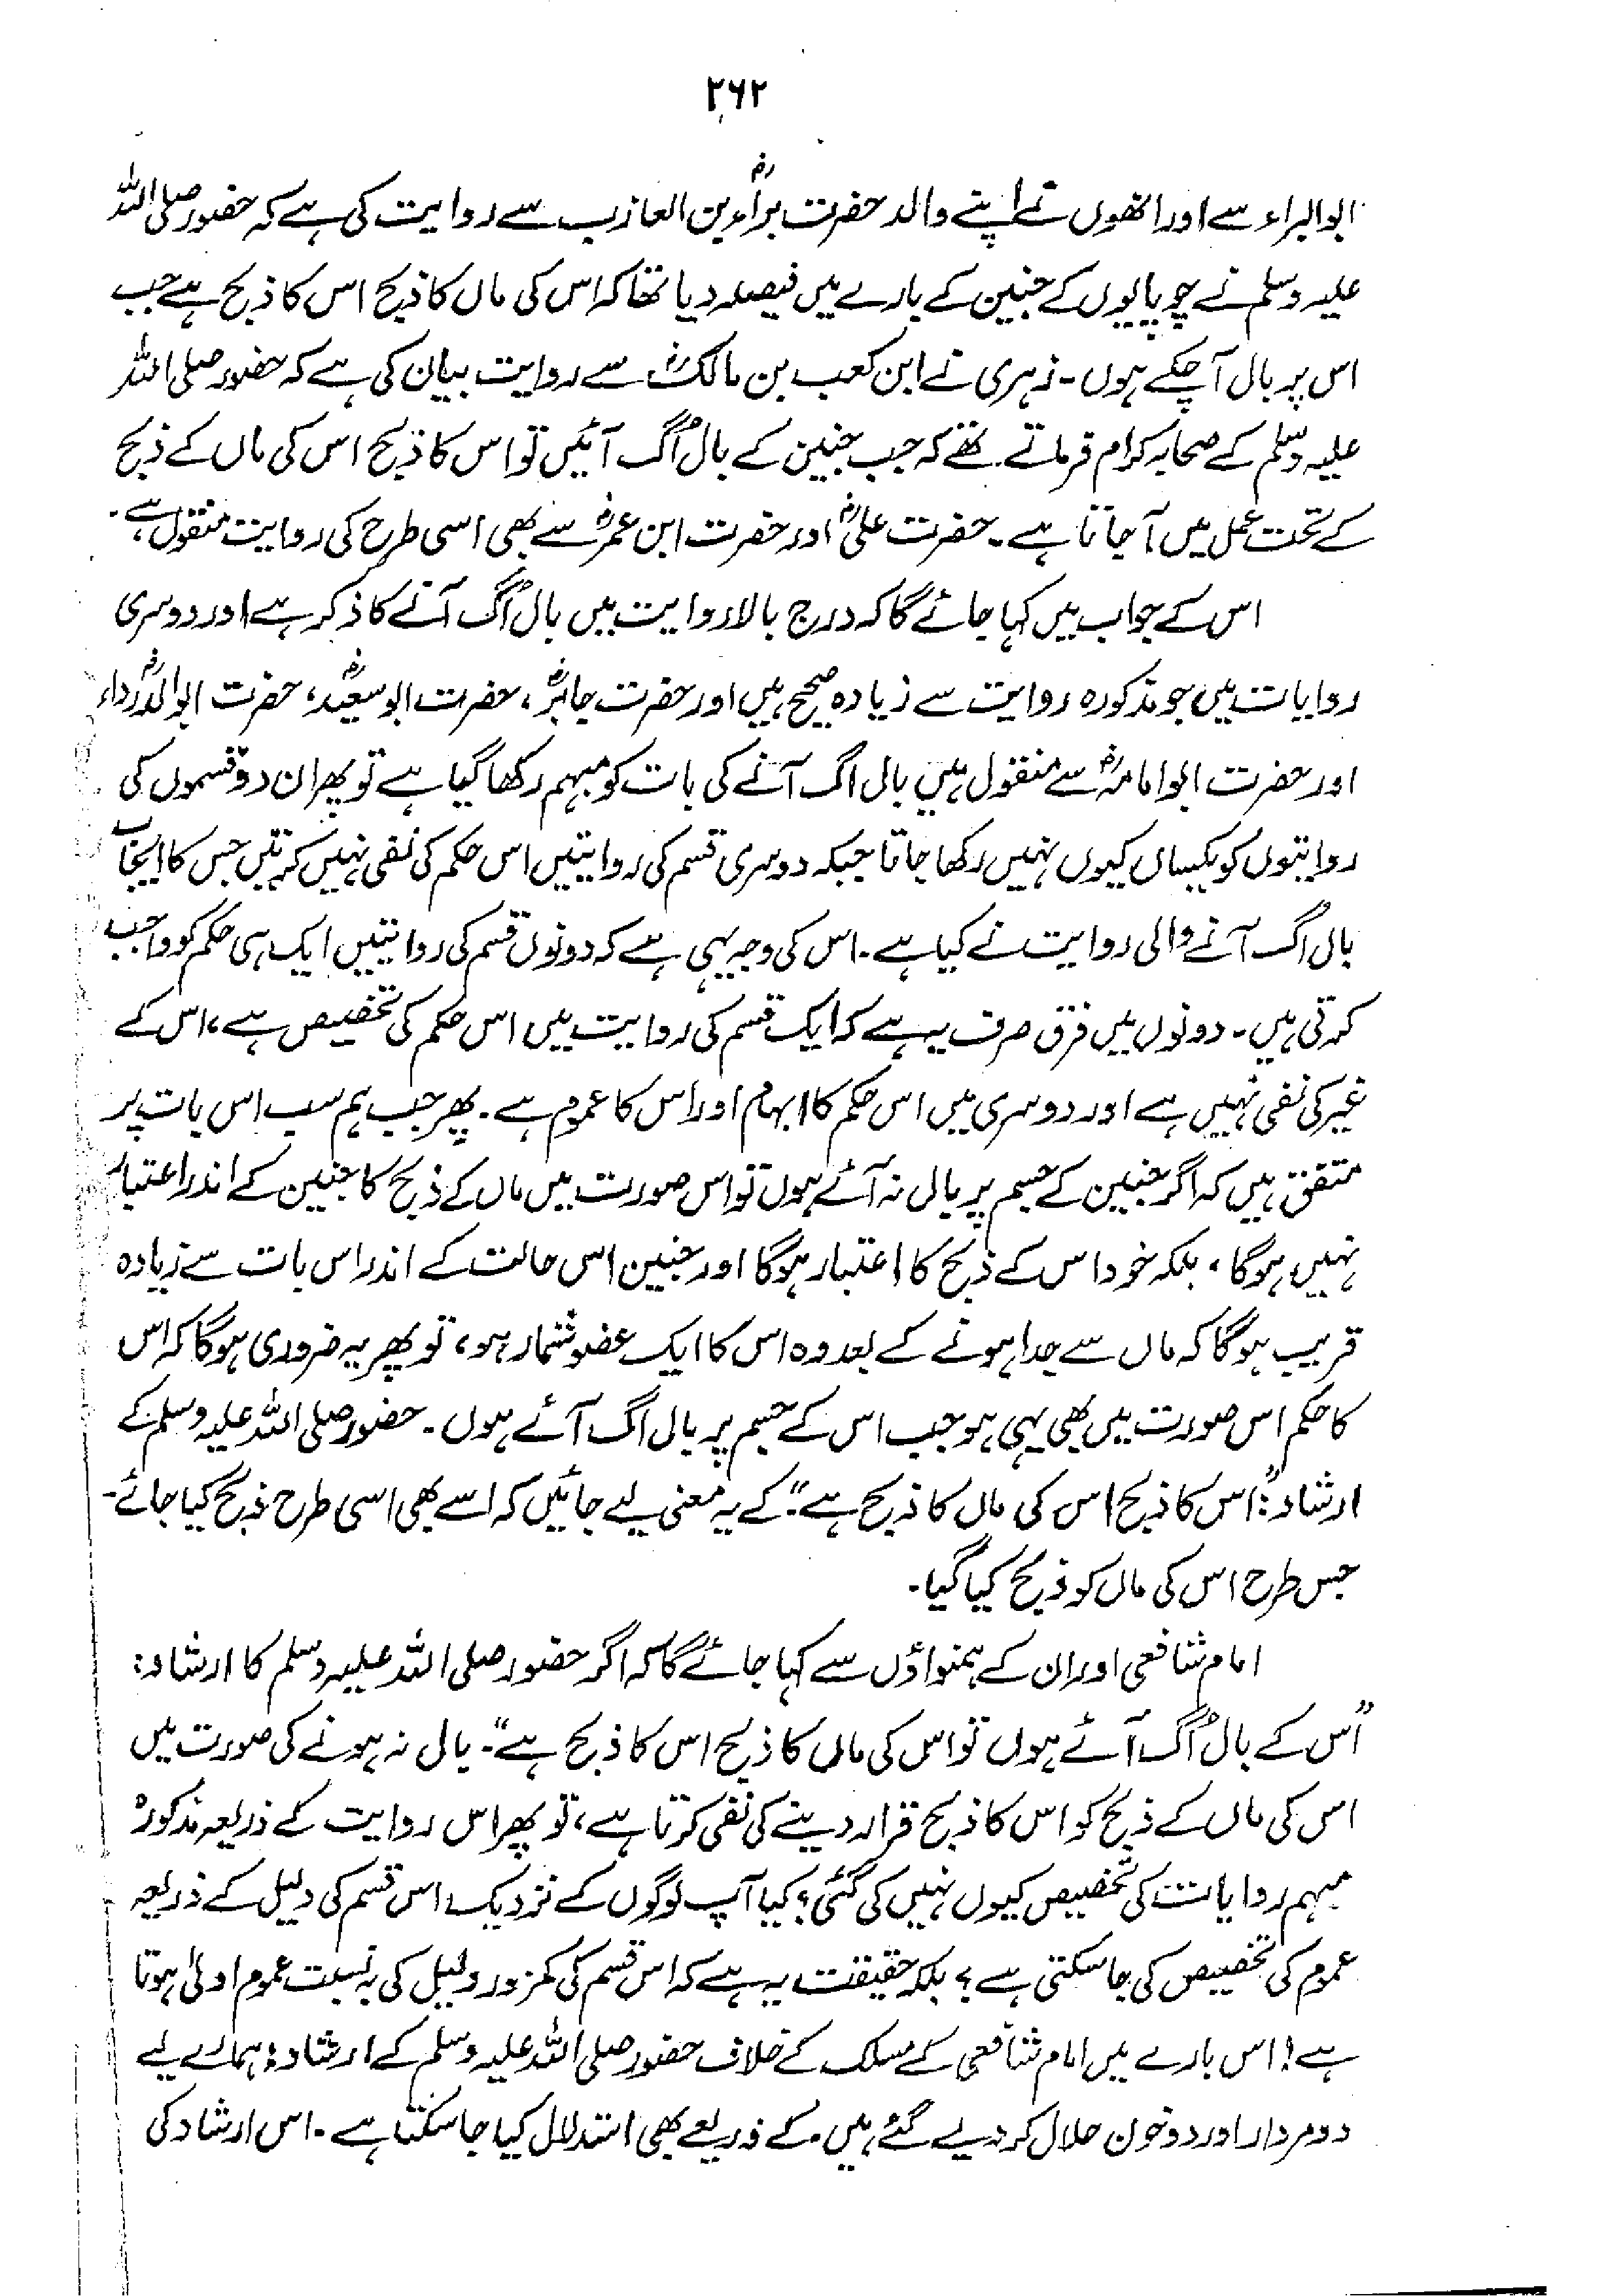 ۲۶۲
ابوالبراء سے اور انھوں نے اپنے والد حضرت براءؓ بن العازب سے روایت کی ہے کہ حضور صلی اللہ
علیہ وسلم نے چوپایوں کے جنین کے بارے میں فیصلہ دیا تھا کہ اس کی ماں کا ذبح اس کا ذبح ہے جب
اس پر بال آ چکے ہوں۔ زہری نے ابن کعب بن مالکؓ سے روایت بیان کی ہے کہ حضور صلی اللہ
علیہ وسلم کے صحابہ کرام فرماتے تھے کہ جب جنین کے بال اُگ آئیں تو اس کا ذبح اس کی ماں کے ذبح
کے تحت عمل میں آ جاتا ہے۔ حضرت علیؓ اور حضرت ابن عمرؓ سے بھی اسی طرح کی روایت منقول ہے۔
اس کے جواب میں کہا جائے گا کہ درج بالا روایت میں بال اُگ آنے کا ذکر ہے اور دوسری
روایات میں جو مذکورہ روایت سے زیادہ صحیح ہیں اور حضرت جابرؓ، حضرت ابو سعیدؓ، حضرت ابوالدرداءؓ
اور حضرت ابو امامہؓ سے منقول ہیں بال اگ آنے کی بات کو مبہم رکھا گیا ہے تو پھر ان دو قسموں کی
روایتوں کو یکساں کیوں نہیں رکھا جاتا جبکہ دوسری قسم کی روایتیں اس حکم کی نفی نہیں کرتیں جس کا ایجاب
بال اُگ آنے والی روایت نے کیا ہے۔ اس کی وجہ یہی ہے کہ دونوں قسم کی روایتیں ایک ہی حکم کو واجب
کرتی ہیں۔ دونوں میں فرق صرف یہ ہے کہ ایک قسم کی روایت میں اس حکم کی تخصیص ہے، اس کے
غیر کی نفی نہیں ہے اور دوسری میں اس حکم کا ابہام اور اس کا عموم ہے۔ پھر جب ہم سب اس بات پر
متفق ہیں کہ اگر جنین کے جسم پر بال نہ آئے ہوں تو اس صورت میں ماں کے ذبح کا جنین کے اندر اعتبار
نہیں ہوگا، بلکہ خود اس کے ذبح کا اعتبار ہوگا اور جنین اس حالت کے اندر اس بات سے زیادہ
قریب ہوگا کہ ماں سے جدا ہونے کے بعد وہ اس کا ایک عضو شمار ہو، تو پھر یہ ضروری ہوگا کہ اس
کا حکم اس صورت میں بھی یہی ہو جب اس کے جسم پر بال اگ آئے ہوں۔ حضور صلی اللہ علیہ وسلم کے
ارشاد: "اس کا ذبح اس کی ماں کا ذبح ہے"۔ کے یہ معنی لیے جائیں کہ اسے بھی اسی طرح ذبح کیا جائے۔
جس طرح اس کی ماں کو ذبح کیا گیا۔
امام شافعی اور ان کے ہمنواؤں سے کہا جائے گا کہ اگر حضور صلی اللہ علیہ وسلم کا ارشاد:
"اُس کے بال اُگ آئے ہوں تو اس کی ماں کا ذبح اس کا ذبح ہے"۔ بال نہ ہونے کی صورت میں
اس کی ماں کے ذبح کو اس کا ذبح قرار دینے کی نفی کرتا ہے، تو پھر اس روایت کے ذریعہ مذکورہ
مبہم روایات کی تخصیص کیوں نہیں کی گئی؟ کیا آپ لوگوں کے نزدیک اس قسم کی دلیل کے ذریعہ
عموم کی تخصیص کی جا سکتی ہے؟ بلکہ حقیقت یہ ہے کہ اس قسم کی کمزور دلیل کی بہ نسبت عموم اولیٰ ہوتا
ہے! اس بارے میں امام شافعی کے مسلک کے خلاف حضور صلی اللہ علیہ وسلم کے ارشاد: ہمارے لیے
دو مردار اور دو خون حلال کر دیے گئے ہیں۔ کے ذریعے بھی استدلال کیا جا سکتا ہے۔ اس ارشاد کی